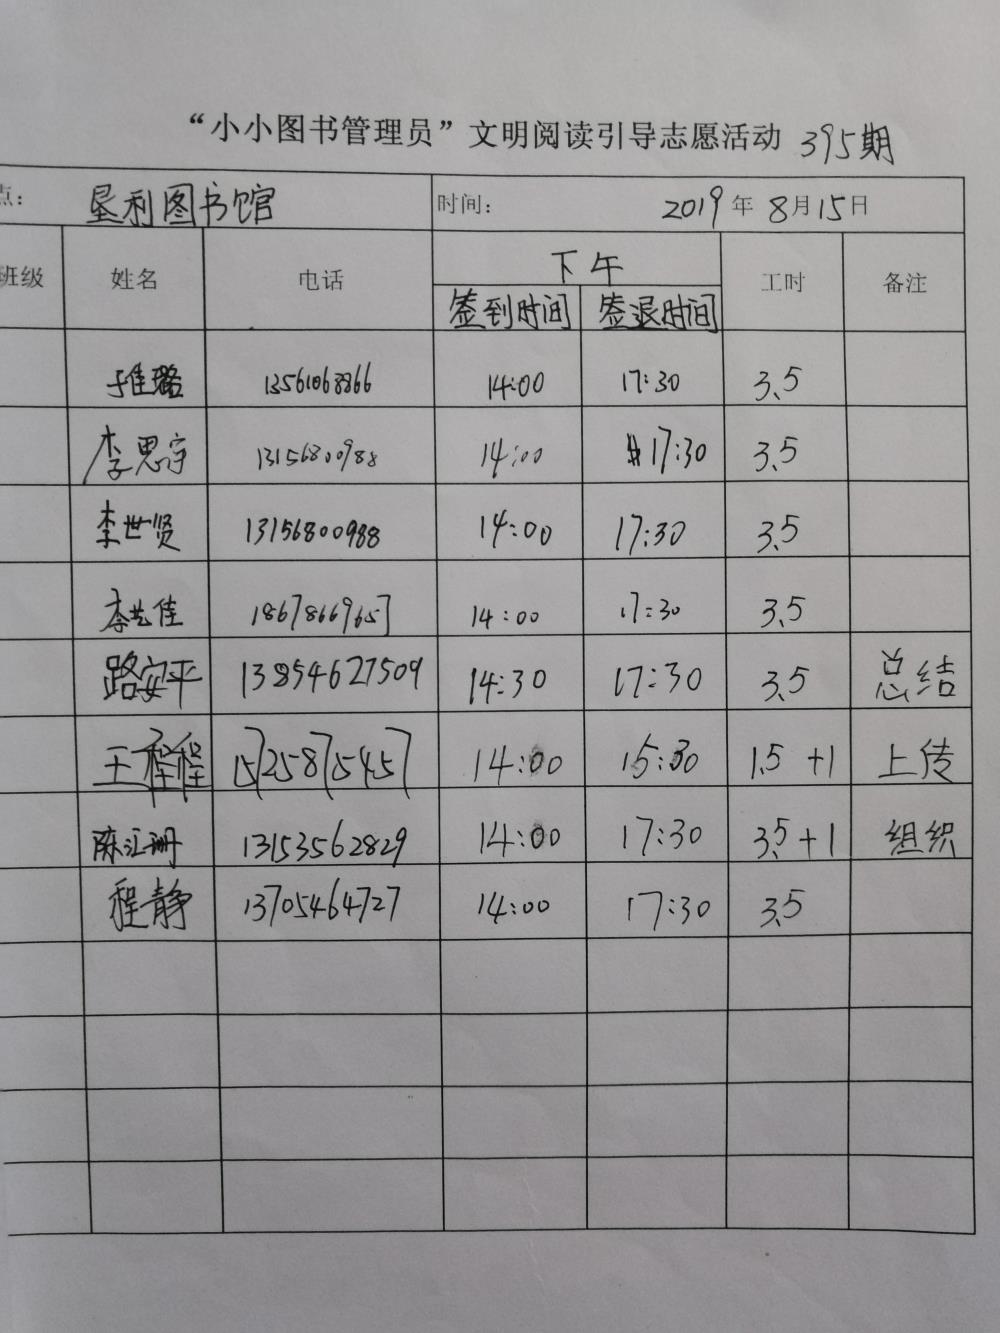 “小小图书管理员”文明阅读引导志愿活动 395期
点： 垦利图书馆 时间： 2019年8月15日
班级 姓名 电话 下午 工时 备注
签到时间 签退时间
于佳璐 13561068866 14:00 17:30 3.5
李思宇 13156800988 14:00 17:30 3.5
李世贤 13156800988 14:00 17:30 3.5
李艺佳 18678669657 14:00 17:30 3.5
路安平 13854627509 14:30 17:30 3.5 总结
王程程 15725875457 14:00 15:30 1.5 +1 上传
陈汇珊 13153562829 14:00 17:30 3.5 +1 组织
程静 13705464727 14:00 17:30 3.5